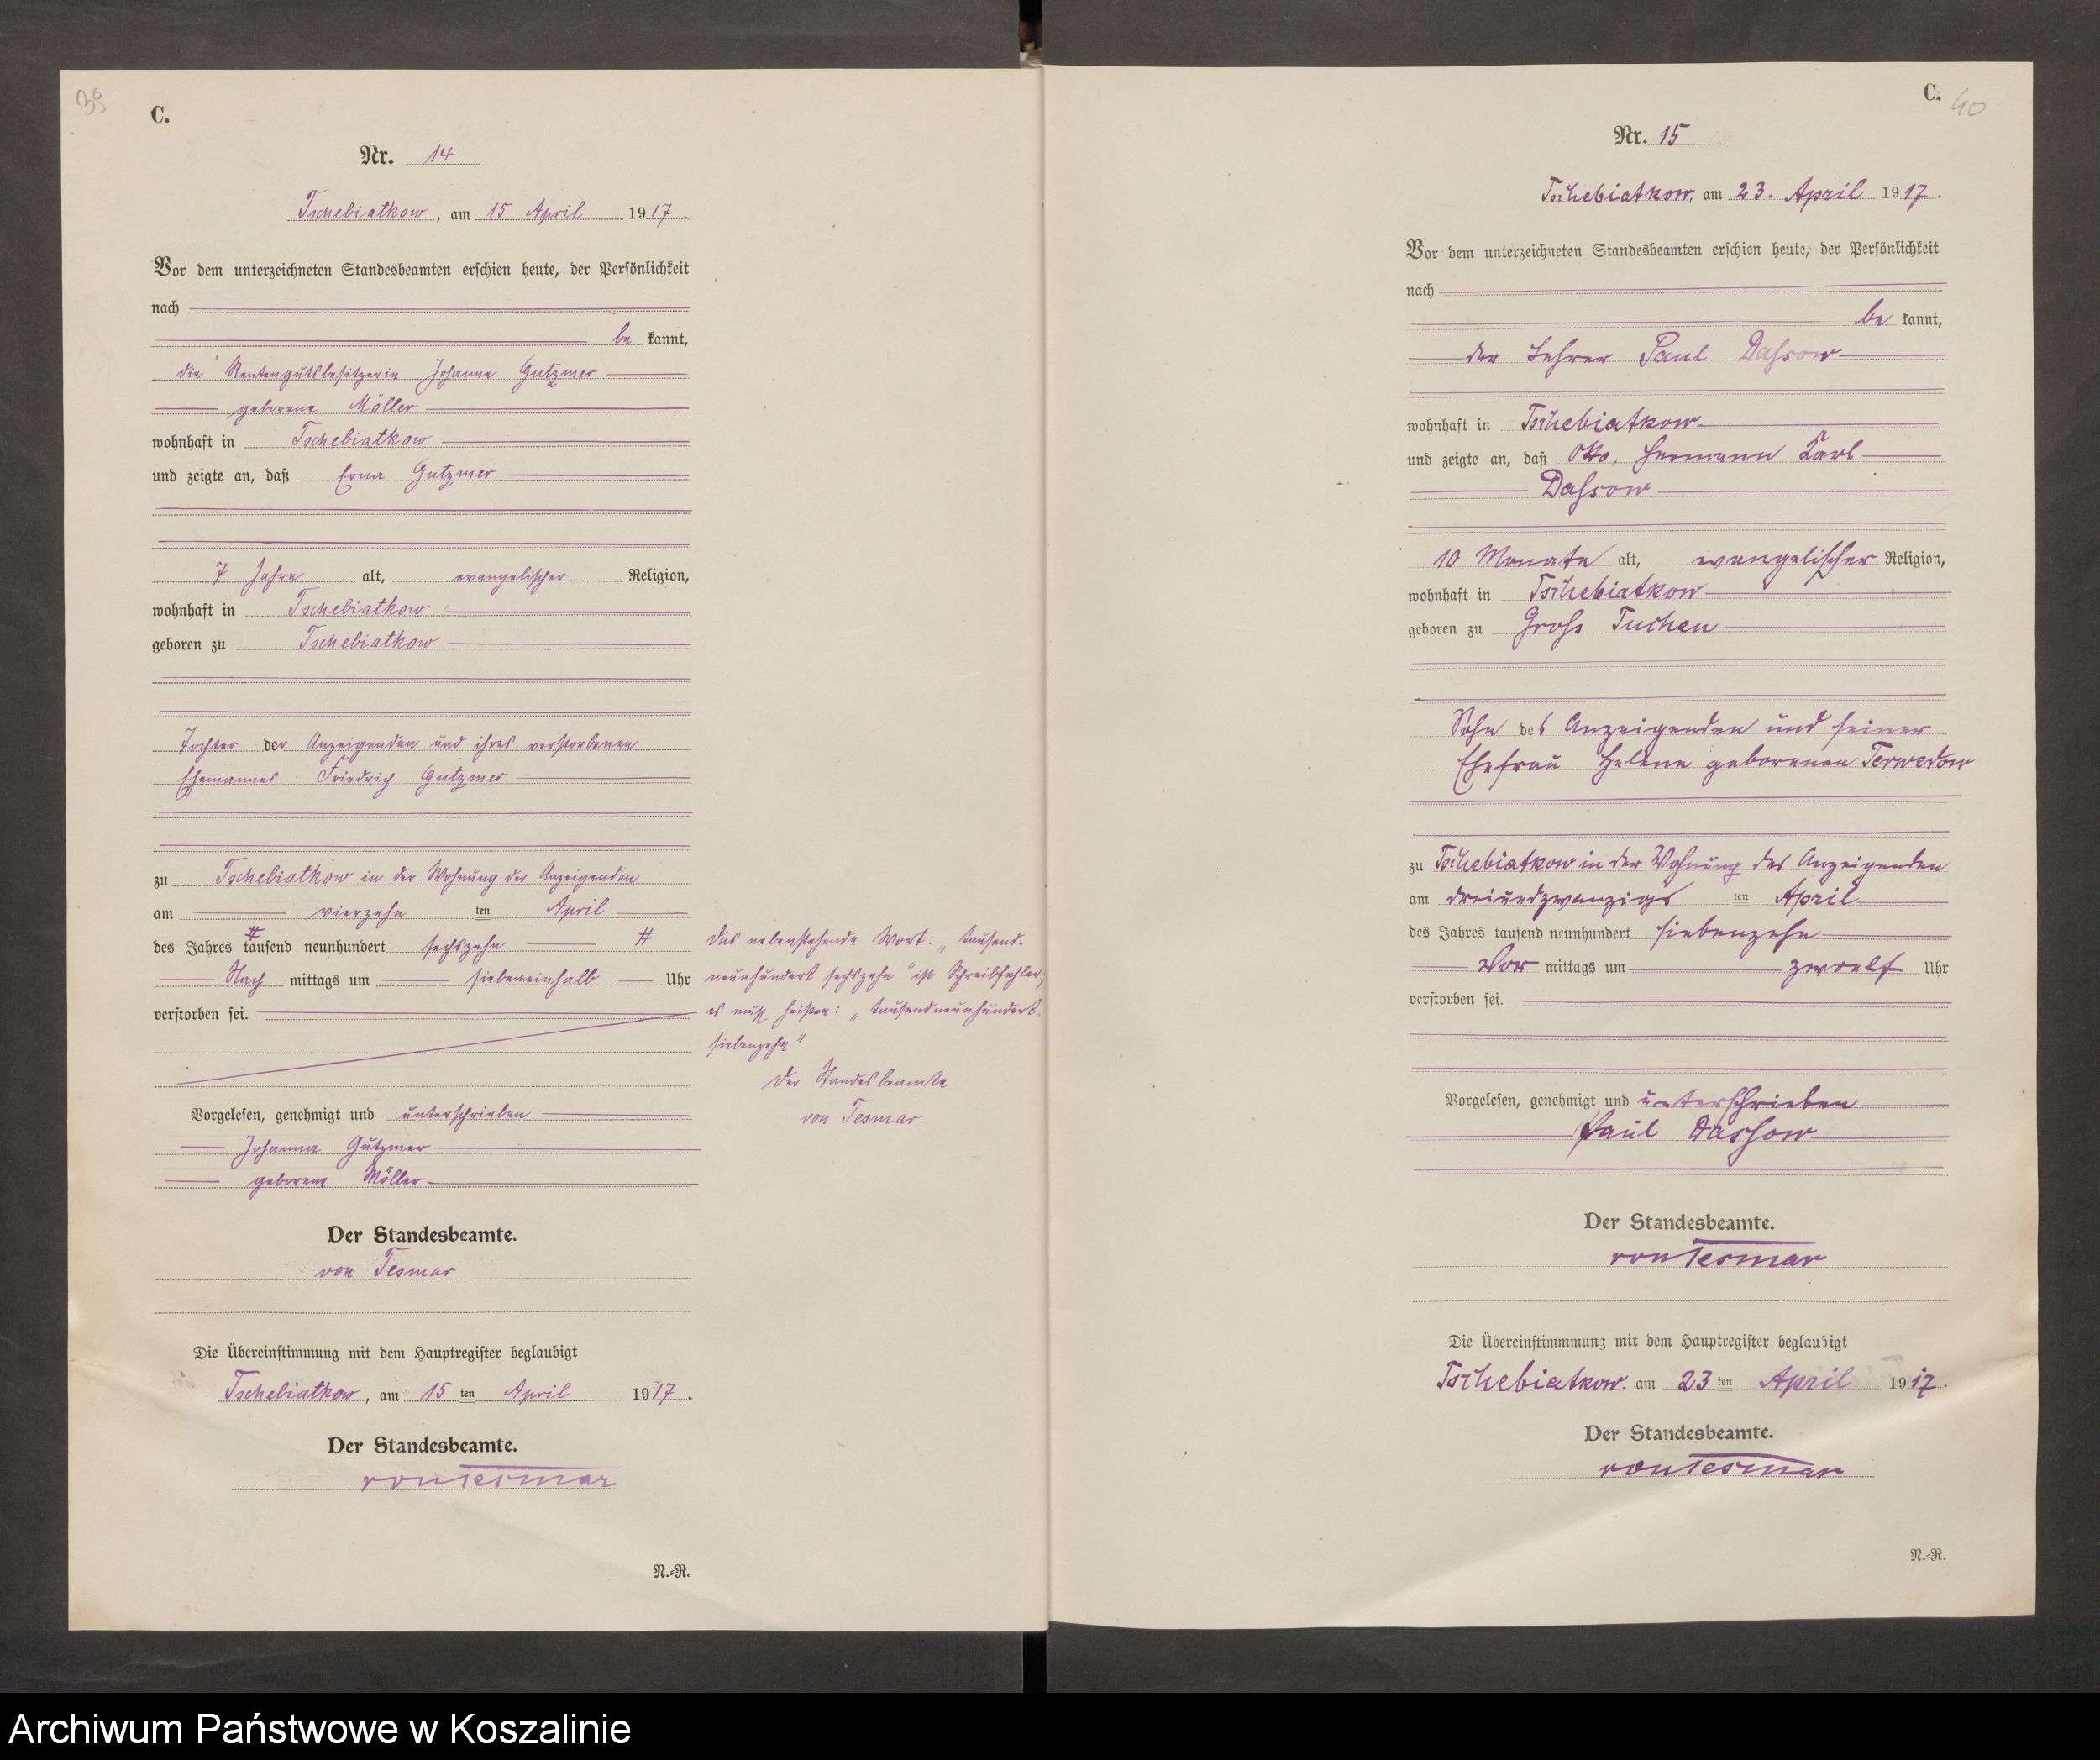 39
C.
Nr. 14
Tschebiatkow, am 15 April 1917.
Vor dem unterzeichneten Standesbeamten erschien heute, der Persönlichkeit
nach
be kannt,
die Rentengutsbesitzerin Johanna Gutzmer
geborene Möller
wohnhaft in Tschebiatkow
und zeigte an, daß Erna Gutzmer
7 Jahre alt, evangelischer Religion,
wohnhaft in Tschebiatkow
geboren zu Tschebiatkow
Tochter der Anzeigenden und ihres verstorbenen
Ehemannes Friedrich Gutzmer
zu Tschebiatkow in der Wohnung der Anzeigenden
am vierzehn ten April
des Jahres # tausend neunhundert sechszehn #
Nach mittags um siebeneinhalb Uhr
verstorben sei.
Das nebenstehende Wort: „tausend-
neunhundert sechszehn" ist Schreibfehler,
es muß heißen: „tausendneunhundert-
siebenzehn"
Der Standesbeamte
von Tesmar
Vorgelesen, genehmigt und unterschrieben
Johanna Gutzmer
geborene Möller
Der Standesbeamte.
von Tesmar
Die Übereinstimmung mit dem Hauptregister beglaubigt
Tschebiatkow, am 15 ten April 1917.
Der Standesbeamte.
von Tesmar
N.=R.
C.
40
Nr. 15
Tschebiatkow, am 23. April 1917.
Vor dem unterzeichneten Standesbeamten erschien heute, der Persönlichkeit
nach
be kannt,
der Lehrer Paul Dassow
wohnhaft in Tschebiatkow
und zeigte an, daß Otto, Hermann Karl
Dassow
10 Monate alt, evangelischer Religion,
wohnhaft in Tschebiatkow
geboren zu Gross Tuchen
Sohn des Anzeigenden und seiner
Ehefrau Helene geborenen Terwedow
zu Tschebiatkow in der Wohnung des Anzeigenden
am dreiundzwanzigs ten April
des Jahres tausend neunhundert siebenzehn
Vor mittags um zwoelf Uhr
verstorben sei.
Vorgelesen, genehmigt und unterschrieben
Paul Dassow
Der Standesbeamte.
von Tesmar
Die Übereinstimmmung mit dem Hauptregister beglaubigt
Tschebiatkow, am 23 ten April 1917.
Der Standesbeamte.
von Tesmar
N.=R.
Archiwum Państwowe w Koszalinie